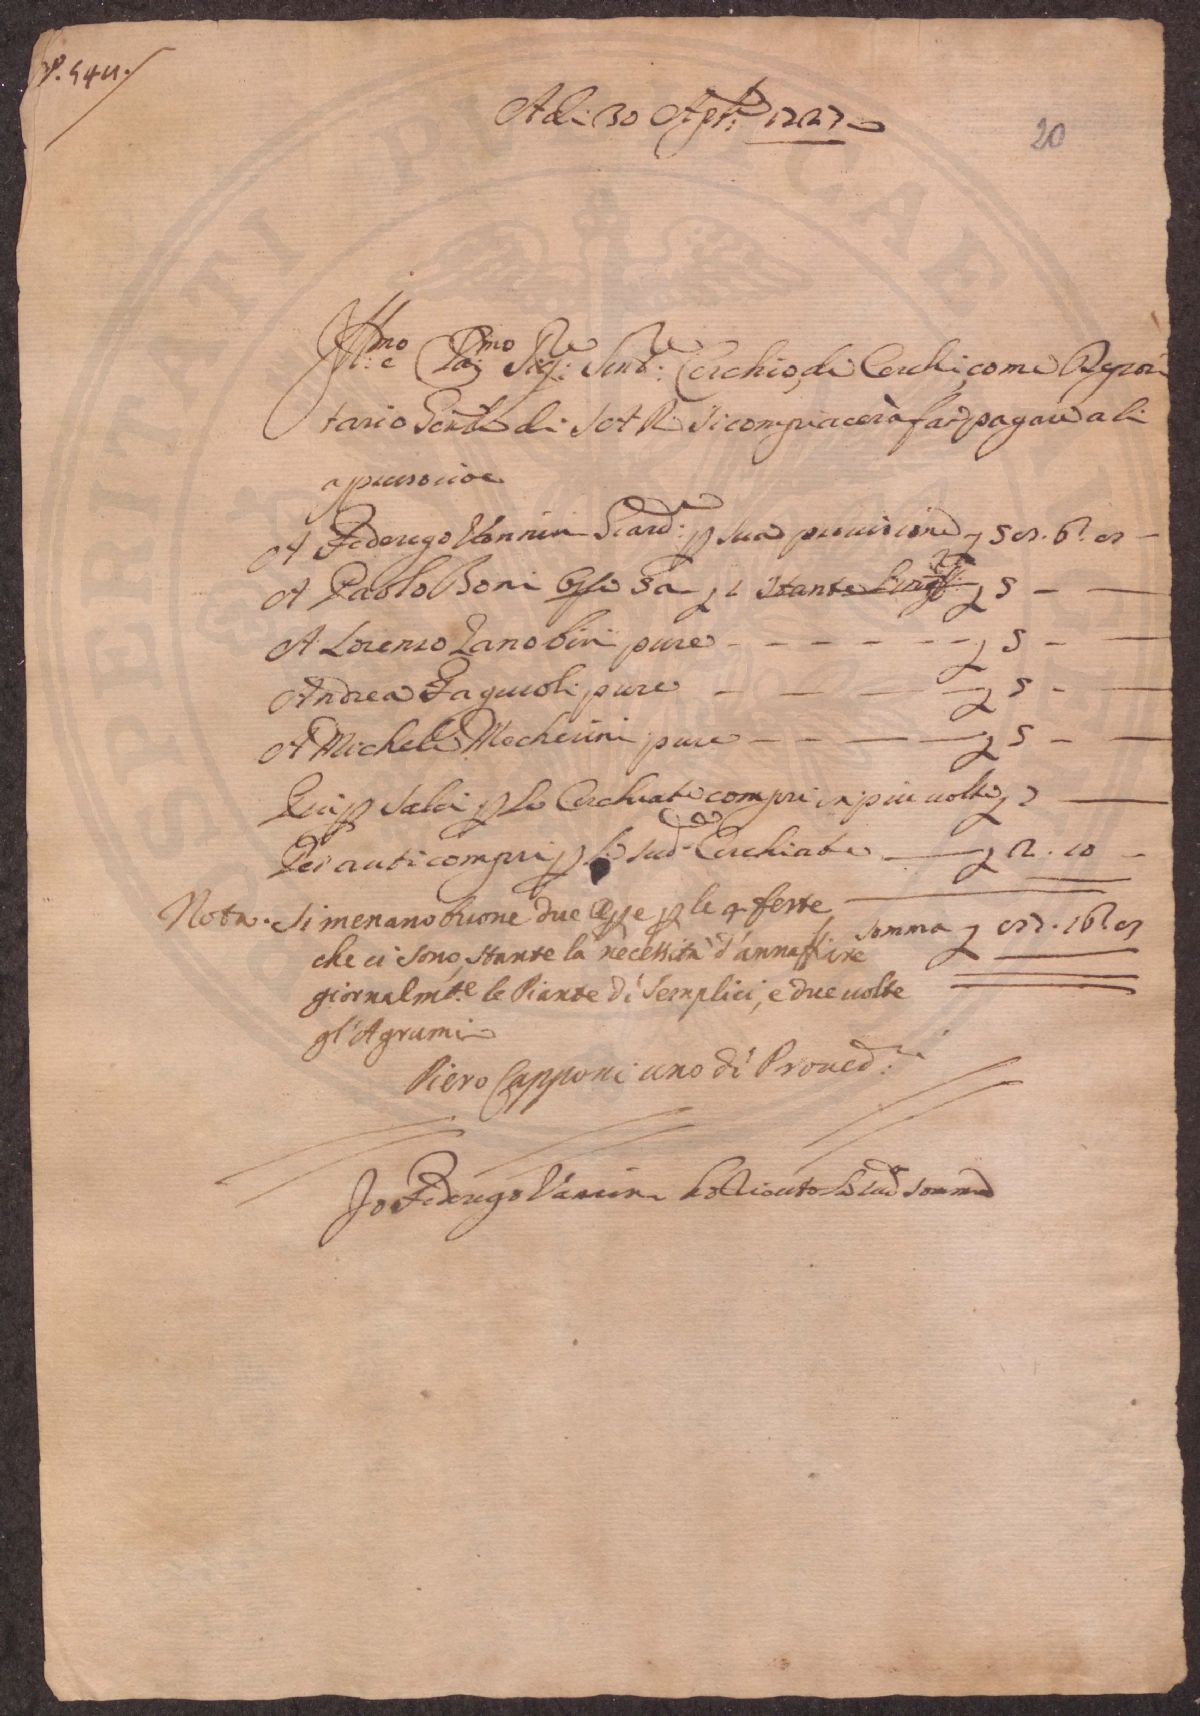 A di 30 Apr. 1727
20
Ill.mo e Sig.re Sen.re Cerchio de Cerchi, come Deposi
tario Gen.le di S.A.R. si compiacerà far pagare a li
A Federego Vannini Giard. p sua provisione
A Paolo Boni Opre 5 a stante
A Lorenzo Zanobini pure — 5 —
Andrea Fagiuoli pure — 5 —
A Michele Mecherini pure — 5 —
p Salci p le Cerchiate compri in piu volte
Per auti compri p le sud.e Cerchiate — 2 . 10 —
Nota. Si menano buone due Opre p le 4 feste
Somma
che ci sono, stante la necessità d'annaffiare
giornalm.te le Piante di Semplici, e due volte
gl'Agrumi
Piero Capponi uno di Proved.ri
Io Federego Vannini ho riceuto la sud.a somma